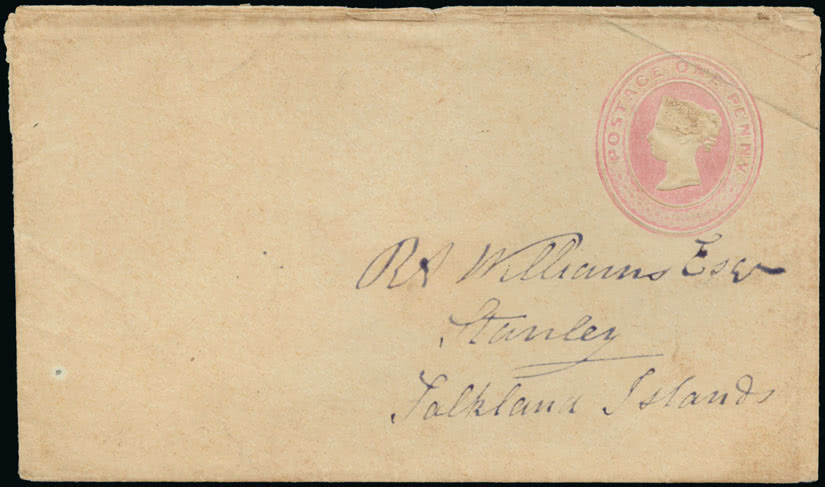 POSTAGE ONE PENNY
RA Williams Esqr
Stanley
Falkland Islands